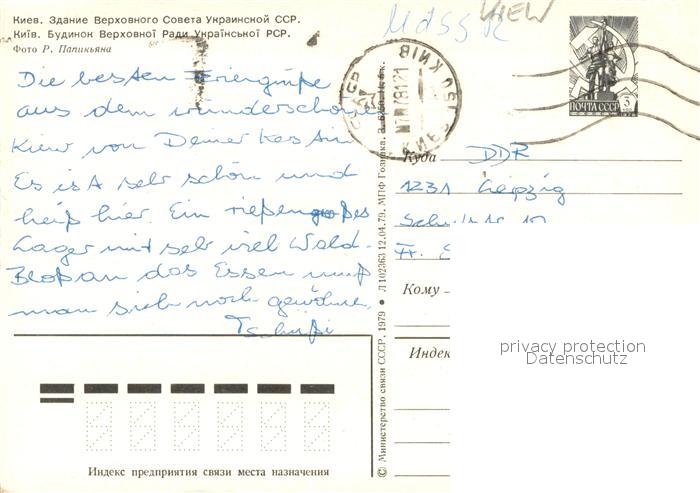 Киев. Здание Верховного Совета Украинской ССР.
Київ. Будинок Верховної Ради Української РСР.
Фото Р. Папикьяна
UdSSR
KIEW
Die besten Feriengrüße
aus dem wunderschönen
Kiew von Deiner
Es ist sehr schön und
heiß hier. Ein riesengroßes
Lager mit sehr viel Wald.
Bloß an das Essen muß
man sich noch gewöhnen.
Tschüßi
ПОЧТА СССР
КИЇВ
Куда
DDR
Leipzig
Кому
Индекс
privacy protection
Datenschutz
© Министерство связи СССР, 1979 • Л 102363 12.04.79. МПФ Гознака.
Индекс предприятия связи места назначения